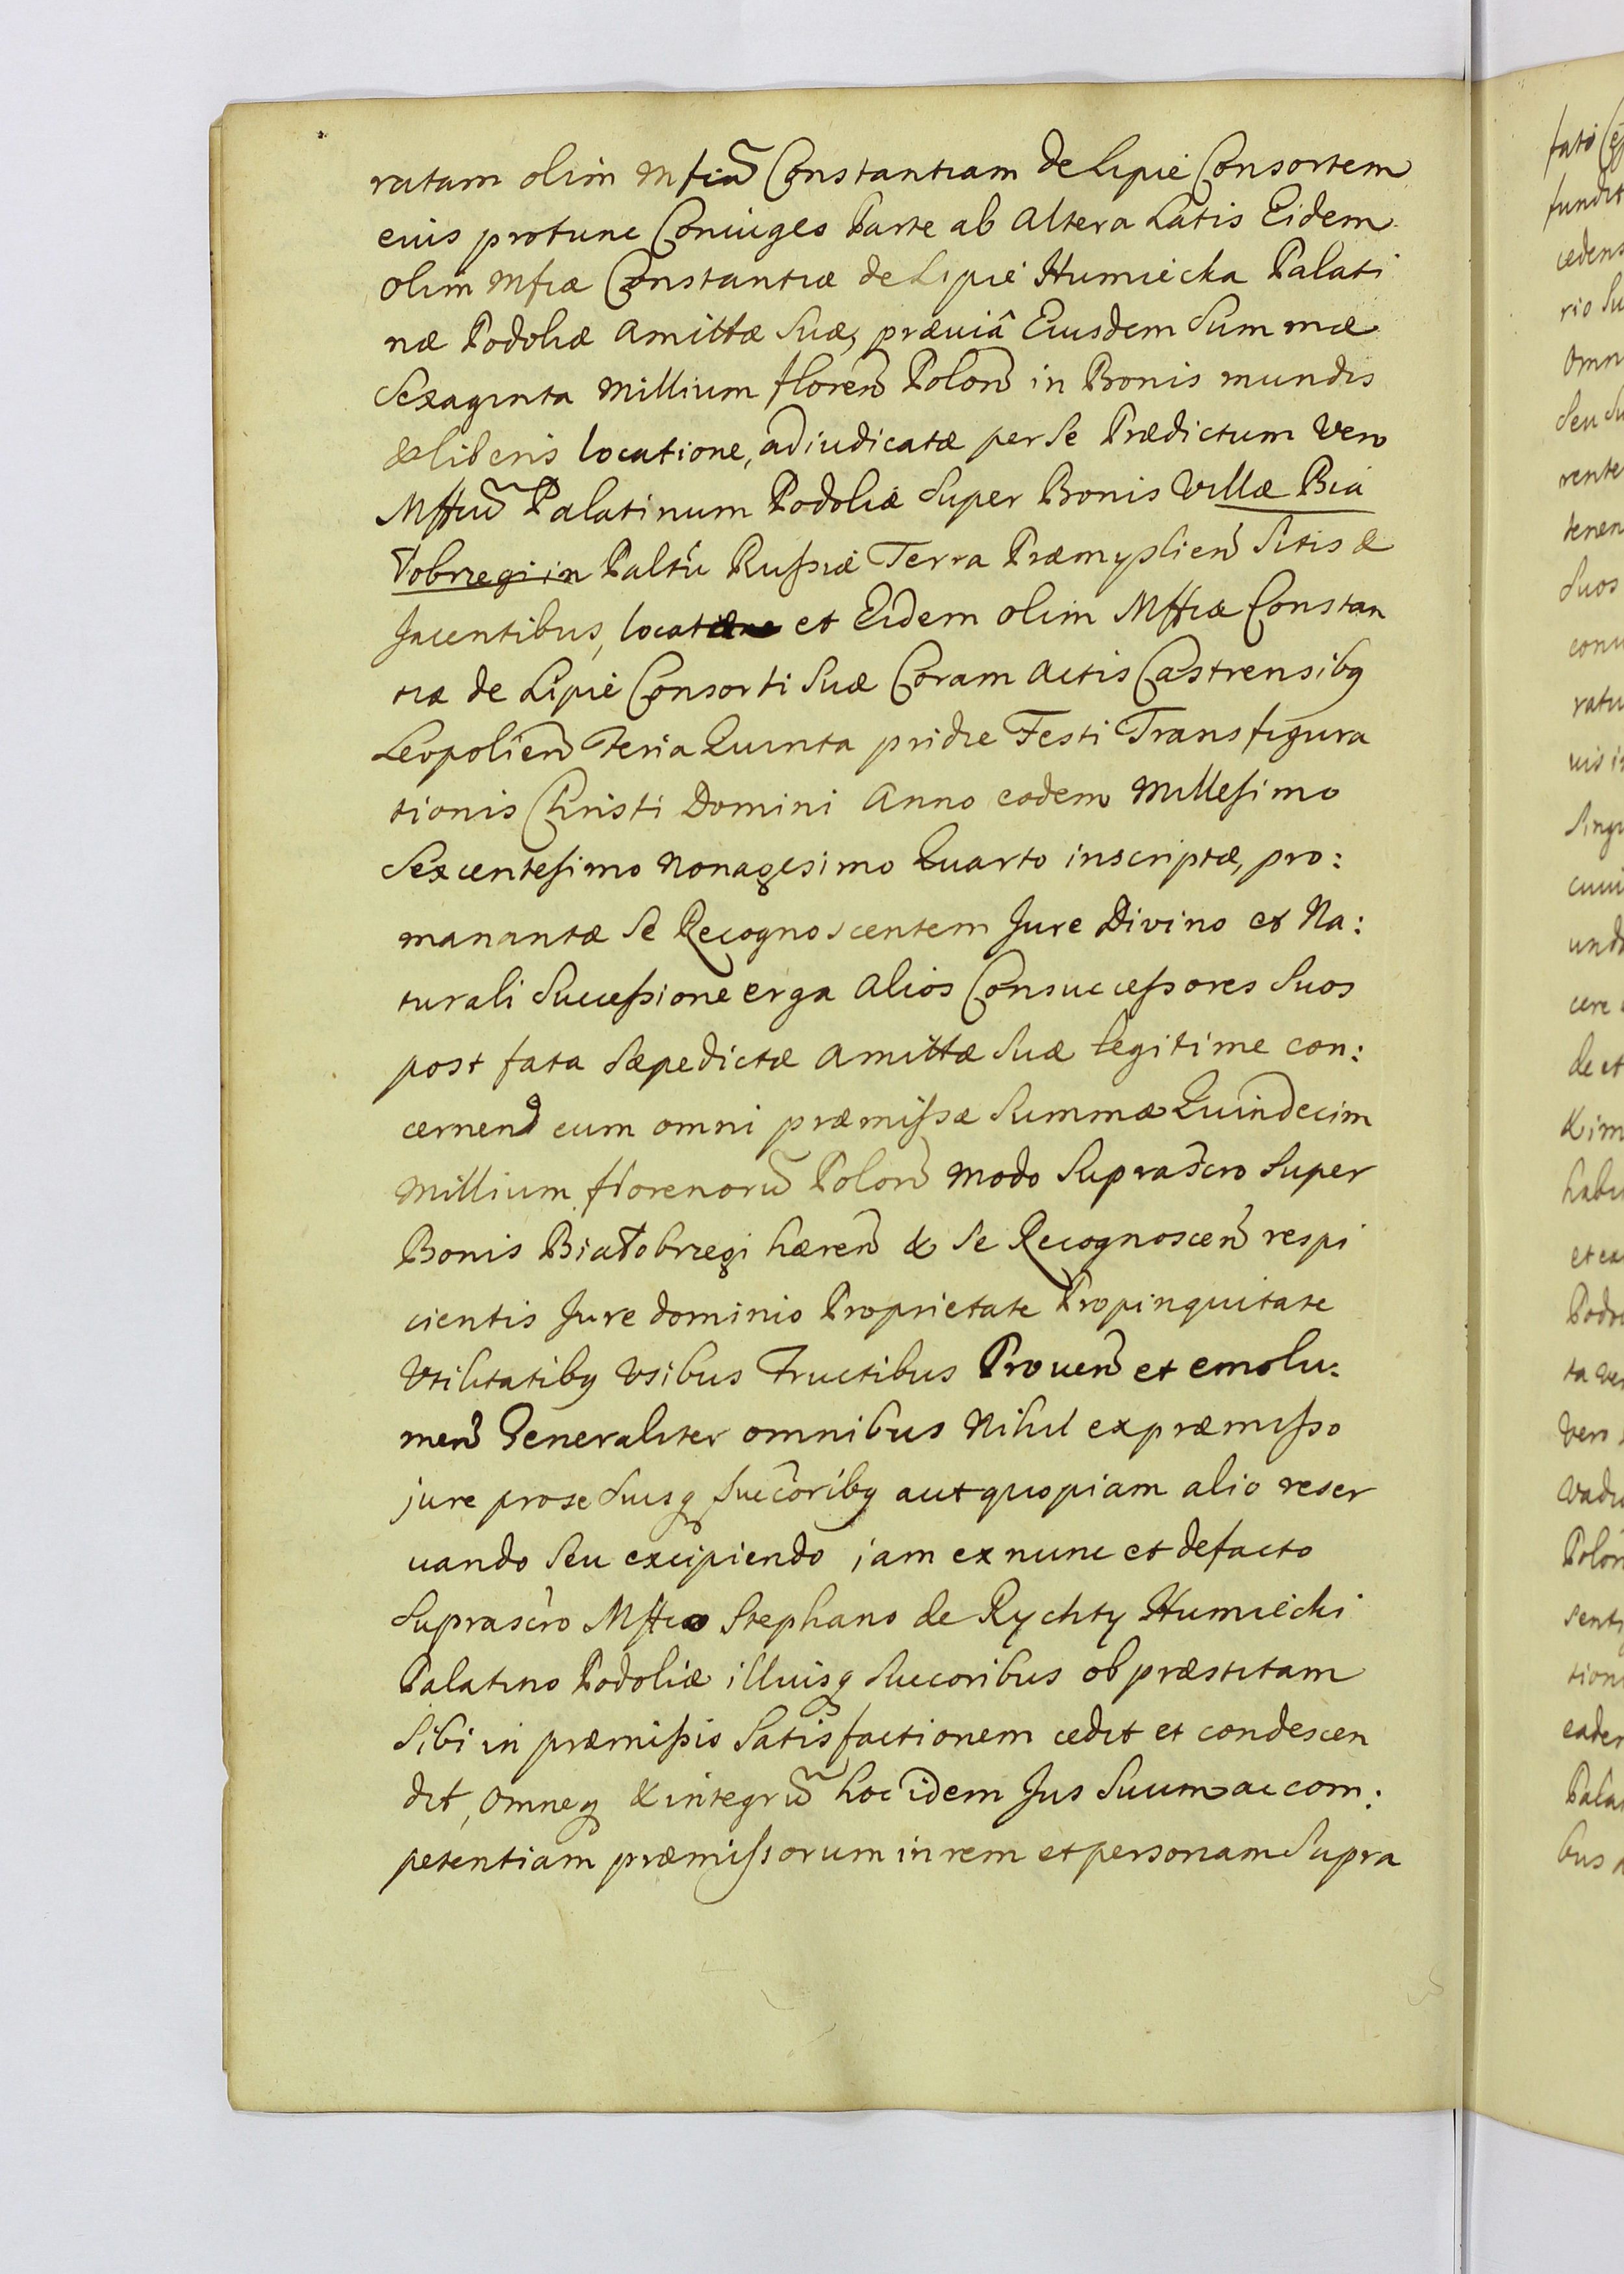 ratam olim Mficã Constantiam de Lipie Consortem
eius protunc Coniuges Parte ab altera Latis Eidem
olim Mficæ Constantiæ de Lipie Humiecka Palati
næ Podoliæ Amittæ Suæ, præuiâ Eiusdem Summæ
Sexaginta Millium floreñ Poloñ in Bonis mundis
& liberis locatione, adiudicatæ per Se Prædictum Vero
Mfficũ Palatinum Podoliæ Super Bonis Villæ Bia
łobrzegi in Paltu Russiæ Terra Præmyslieñ Sitis &
Jacentibus, locatæ et Eidem olim Mfficæ Constan
tiæ de Lipie Consorti Suæ Coram Actis Castrensibq
Leopolieñ Feria Quinta pridie Festi Transfigura
tionis Christi Domini Anno eodem Millesimo
Sexcentesimo Nonagesimo Quarto inscriptæ, pro:
manantæ Se Recognoscentem Jure Divino et Na:
turali Successione erga alios Consuccessores Suos
post fata Sæpedictæ Amittæ Suæ legitime con:
cernend cum omni præmissæ Summæ Quindecim
Millium florenorũ Poloñ modo Suprascro Super
Bonis Białobrzegi hæreñ & Se Recognosceñ respi
cientis Jure dominio Proprietate Propinquitate
Vtilitatibq Vsibus Fructibus Proueñ et emolu:
meñ Generaliter omnibus Nihil ex præmisso
jure pro se Suisq Succoribq aut quopiam alio reser
uando Seu excipiendo jam ex nunc et de facto
Suprascro Mffico Stephano de Rychty Humiecki
Palatino Podoliæ illiusq Succoribus ob præstitam
Sibi in præmissis Satisfactionem cedit et condescen
dit, Omneq & integrũ hoc idem Jus Suum ac com:
petentiam præmissorum in rem et personam Supra
fati
fundit
cedens
rio Su
Omn
Seu Su
rente
tenen
Suos
ratu
uis i
Singu
und
cere
de et
& im
habu
Podo
ta ve
Vero
Vadi
Polon
Senti
tion
eadem
Pala
bus